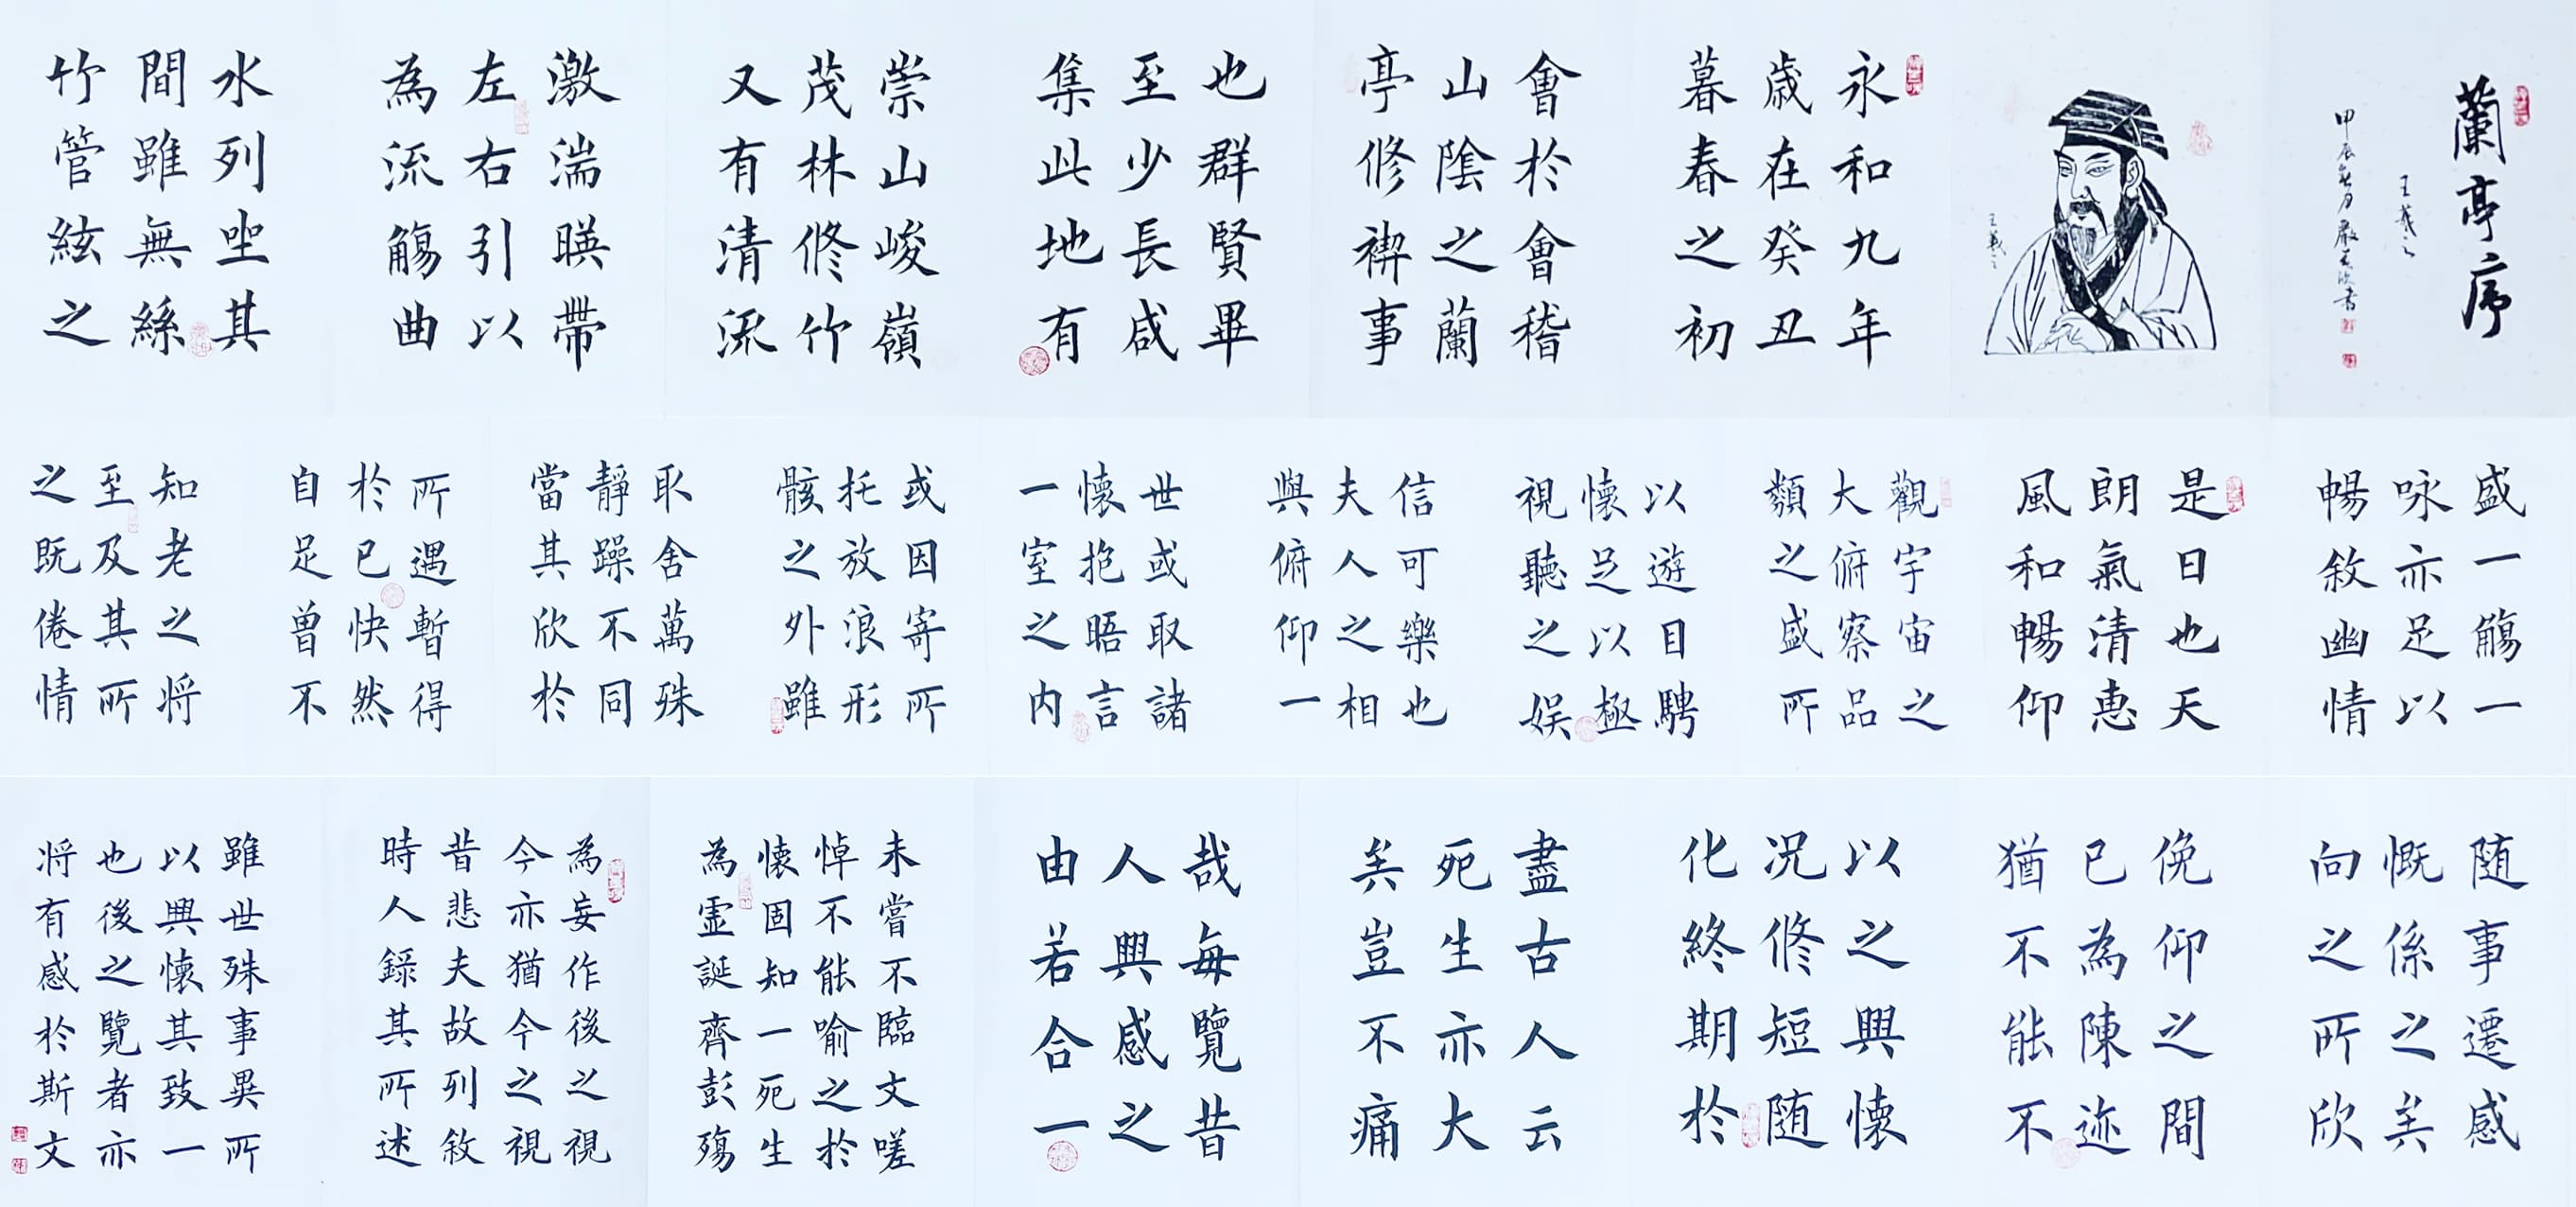 蘭亭序
王羲之
甲辰
王羲之
永和九年
歲在癸丑
暮春之初
會於會稽
山陰之蘭
亭修禊事
也群賢畢
至少長咸
集此地有
崇山峻嶺
茂林修竹
又有清流
激湍暎帶
左右引以
為流觴曲
水列坐其
間雖無絲
竹管絃之
盛一觴一
咏亦足以
暢敘幽情
是日也天
朗氣清惠
風和暢仰
觀宇宙之
大俯察品
類之盛所
以遊目騁
懷足以極
視聽之娱
信可樂也
夫人之相
與俯仰一
世或取諸
懷抱晤言
一室之内
或因寄所
托放浪形
骸之外雖
取舍萬殊
靜躁不同
當其欣於
所遇暫得
於已快然
自足曾不
知老之将
至及其所
之既倦情
随事遷感
慨係之矣
向之所欣
俛仰之間
已為陳迹
猶不能不
以之興懷
况修短随
化終期於
盡古人云
死生亦大
矣豈不痛
哉每覽昔
人興感之
由若合一
未嘗不臨文嗟
悼不能喻之於
懷固知一死生
為虚誕齊彭殤
為妄作後之視
今亦猶今之視
昔悲夫故列敘
時人録其所述
雖世殊事異所
以興懷其致一
也後之覽者亦
将有感於斯文